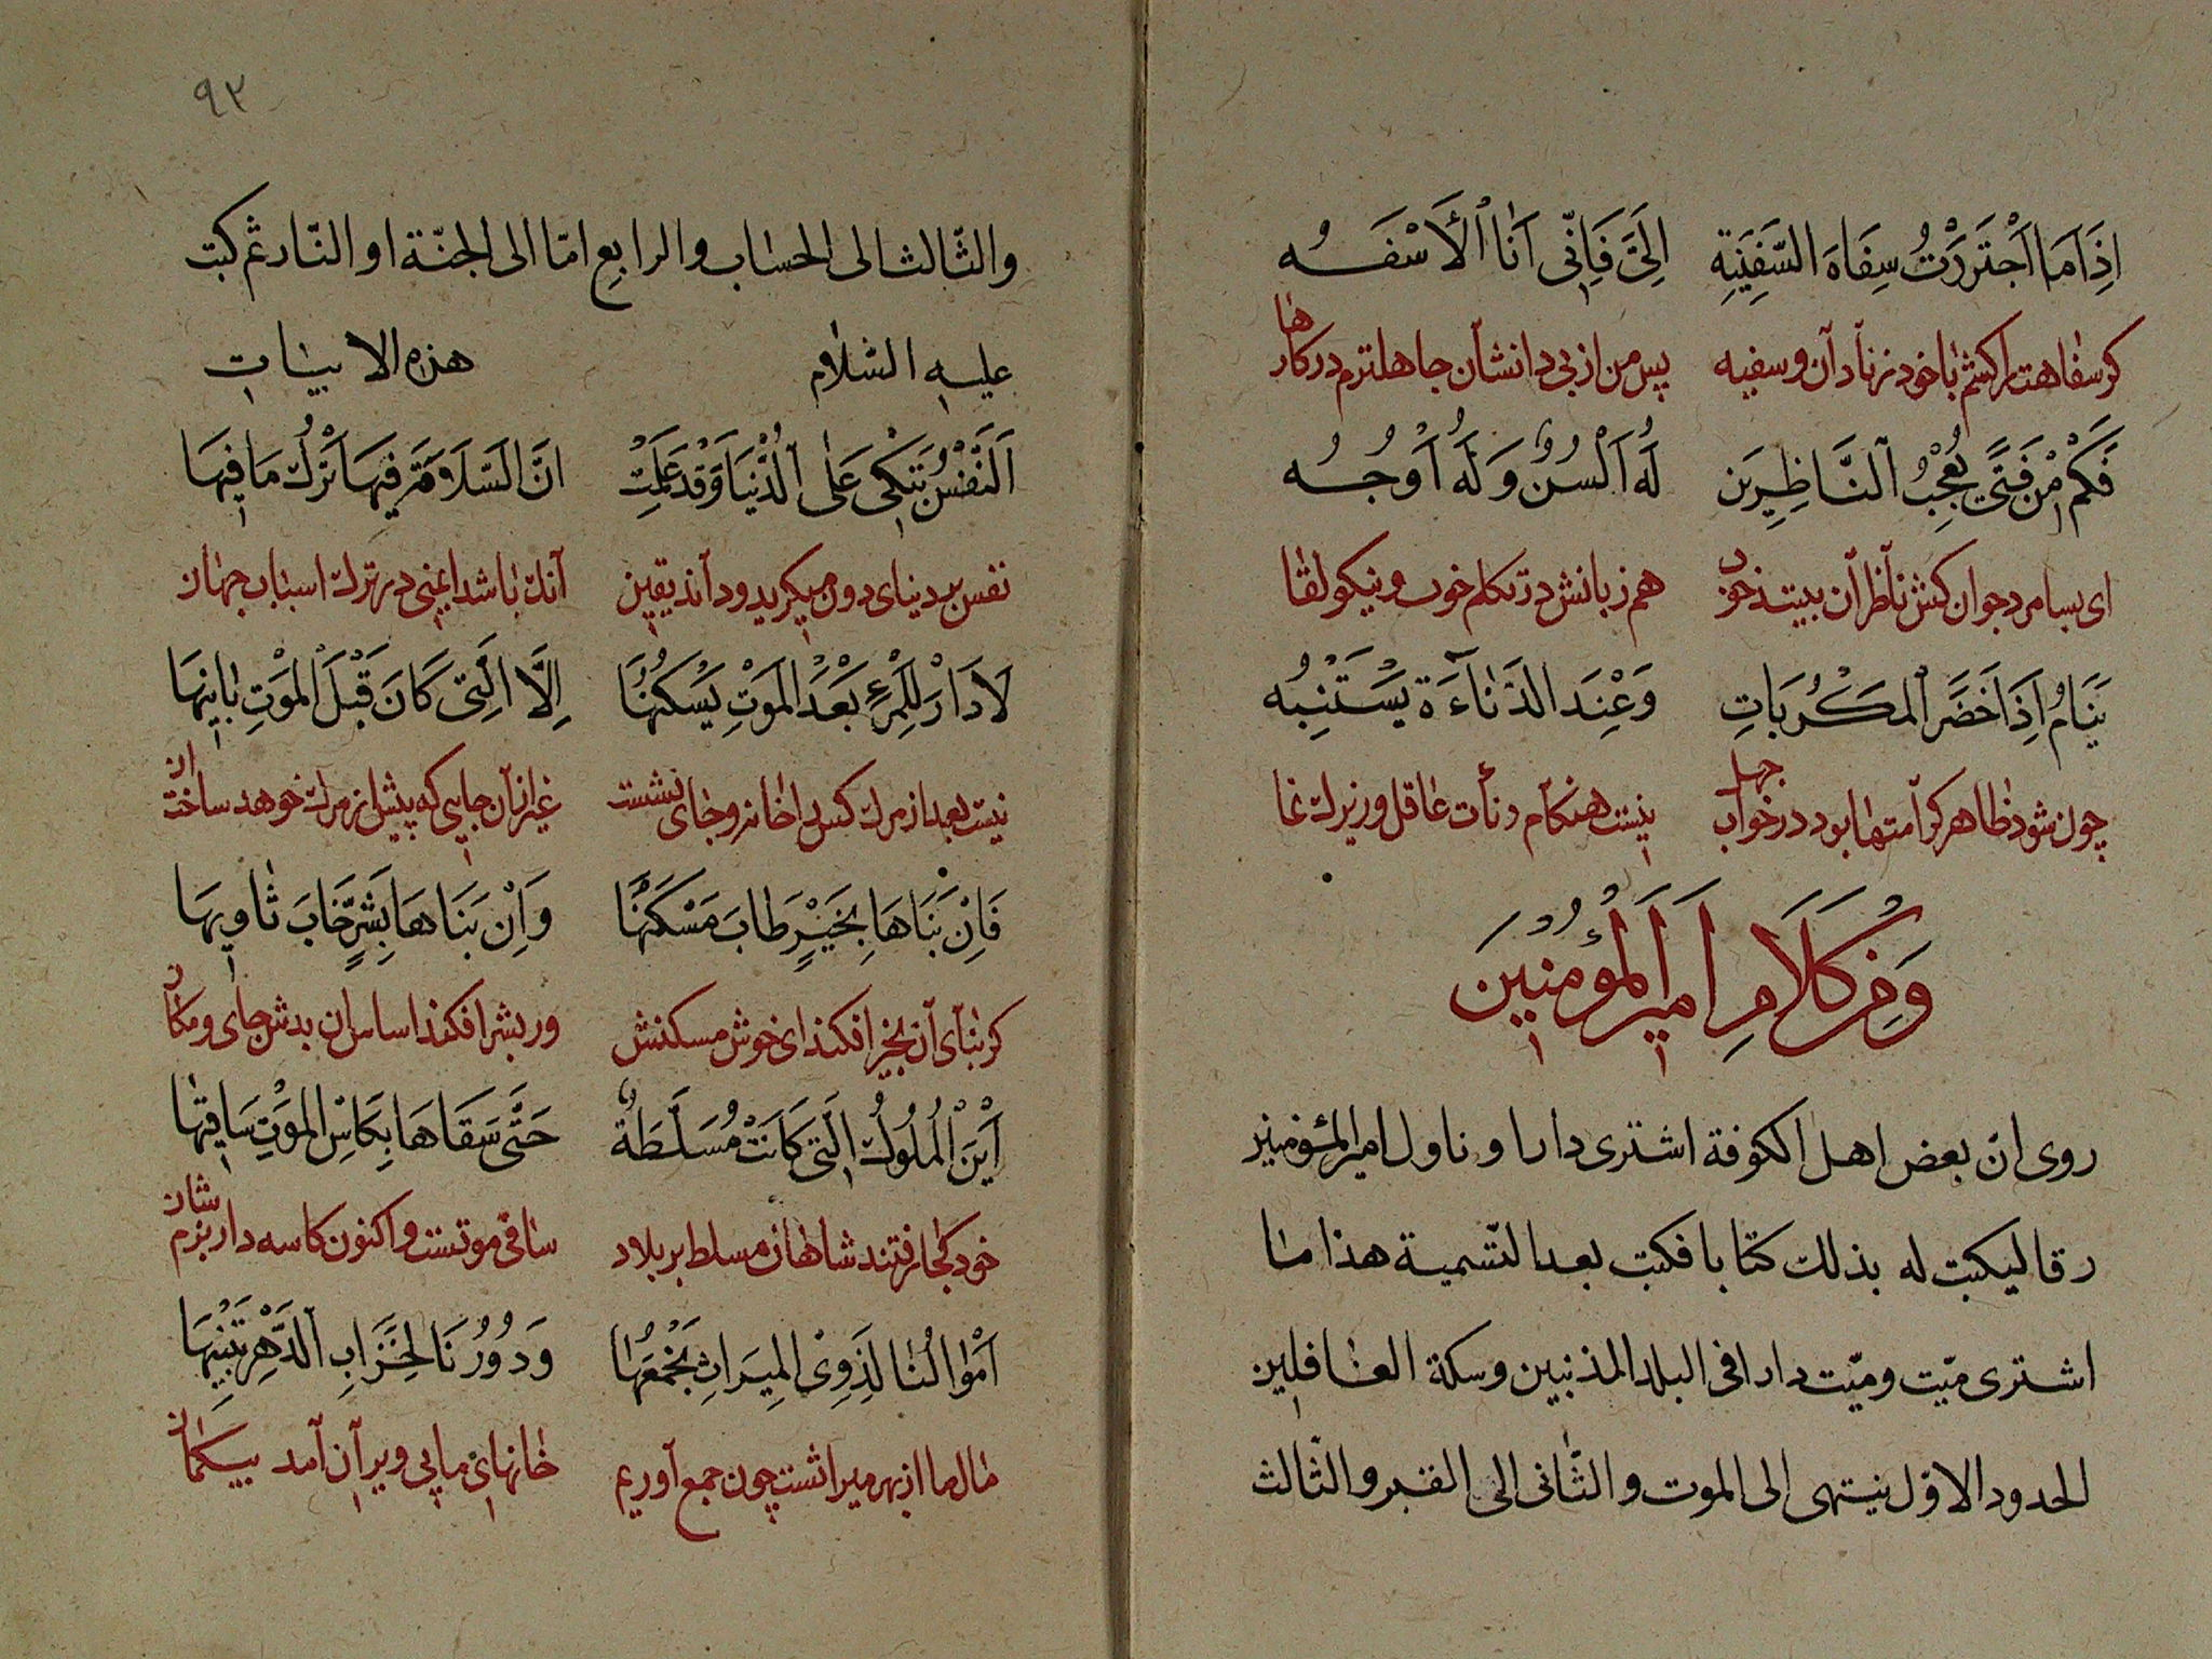 اِذَا مَا اَجْتَرَرْتُ سِفَاهَ السَّفِيَةِ اِلَيَّ فَاِنّى اَنَا اْلاَسْفَـهُ
كر سفاهت را كشم با خود ز نادان و سفيه پس من از بى دانشان جاهلترم در كارها
فَكَمْ مِنْ فَتًى يُعْجِبُ النَّاظِرِيَن لَهُ اَلْسُنٌ وَ لَهُ اَوْجُـهُ
اى بسا مرد جوان كش ناظران بينند خود هم زبانش در تكلم خوب و نيكو لقا
يَنَامُ اِذَا حَضَرَ الْمَكْرُبَاتِ وَعِنْدَ الدَّنٰاءَةِ يَسْتَنْبِهُ
چون شود ظاهر كرامتها بود در خواب جهل نيست هنكام دنأت عاقل و زيرك نما
وَمِنْ كَلاَمِ اَمِيرَ الْمُؤْمِنيَن
روى انّ بعض اهل الكوفة اشترى دارا و ناول امير المؤمنين
رقا ليكتب له بذلك كتابا فكتب بعد التّسمية هذا ما
اشترى ميّت و ميّت دارا فى البلد المذنبين وسكة الغافلين
الحدود الاوّل ينتهى الى الموت و الثّانى الى القبر والثّالث
٩٣
والثّالث الى الحساب والرابعِ امّا الى الجنّة او النّار ثم كتب
عليه السّلام هذه الابيات
اَلنَّفْسُ تَبْكى عَلَى الْدُّنْيَا وَقَدْ عَلِمَتْ انَّ السَّلاَمَةَ فيهَا تَرْكُ مَا فيهَا
نفس بر دنياى دون ميكريد و داند يقين آنك باشد ايمنى در ترك اسباب جهان
لاَدَارَ لِلْمَرْءِ بَعْدَ الْمَوْتِ يَسْكُنُهَا اِلاَّ الَّتِى كَانَ قَبْلَ الْمَوْتِ بٰاينهَا
نيست بعد از مرك كس را خانه و جاى نشست غير از آن جايى كه پيش از مرك خوهد ساخت ان
فَاِنْ بَنَاهَا بِخَيْرٍ طَابَ مَسْكَنُهَا وَاِنْ بَنَاهَا بِشَرٍّ خَابَ ثٰاويهَا
كر بناى آن بخير افكند اى خوش مسكنش ور بشر افكند اساس ان بدش جاى و مكان
اَيْنَ الْمُلُوكُ الَّتِى كَانَتْ مُسَلَّطَةٌ حَتّٰى سَقَاهَا بِكَاْسِ الْمَوْتِ سَاقِيهَا
خود كجا رفتند شاهان مسلط بر بلاد ساقى موتست و اكنون كاسه دار بزم شان
اَمْوٰالُنٰا لِذَوِى الْمِيرَاثِ نَجْمَعُهَا وَدُورُنَا لِخَرَابِ الدَّهْرِ نَبْنِيهَا
مال ما از بهر ميراثست چون جمع آوريم خانهاى ما پى ويران آمد بيكمان